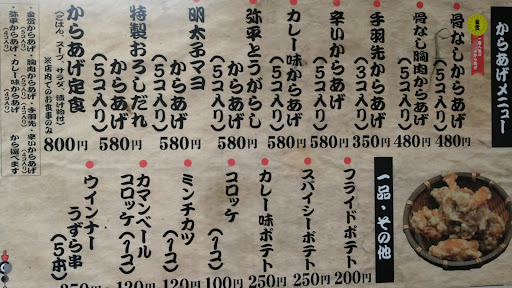 からあげメニュー
骨なしからあげ
（5コ入り）
480円
骨なし胸肉からあげ
（5コ入り）
480円
手羽先からあげ
（3コ入り）
350円
辛いからあげ
（5コ入り）
580円
カレー味からあげ
（5コ入り）
580円
弥平とうがらし
からあげ
（5コ入り）
580円
明太子マヨ
からあげ
（5コ入り）
580円
特製おろしだれ
からあげ
（5コ入り）
580円
からあげ定食
（ごはん、スープ、サラダ、漬け物付）
※店内でのお食事のみ
800円
からあげ
胸肉からあげ
手羽先・辛いからあげ
カレー味からあげ
から選べます
一品・その他
フライドポテト
200円
スパイシーポテト
250円
カレー味ポテト
250円
コロッケ
（1コ）
100円
ミンチカツ
（1コ）
120円
カマンベール
コロッケ（1コ）
120円
ウインナー
うずら串
（5本）
350円